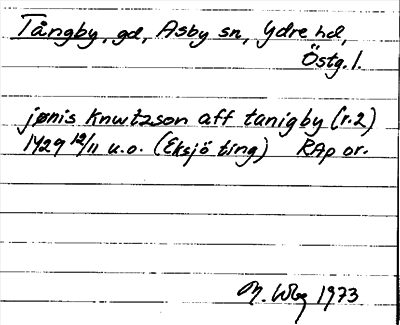 Tångby, gd, Asby sn, Ydre hd,
Östg. l.
jønis knwtzson aff tanigby (r.2)
1429 12/11 u.o. (Eksjö ting) RAp or.
M. Wbg 1973